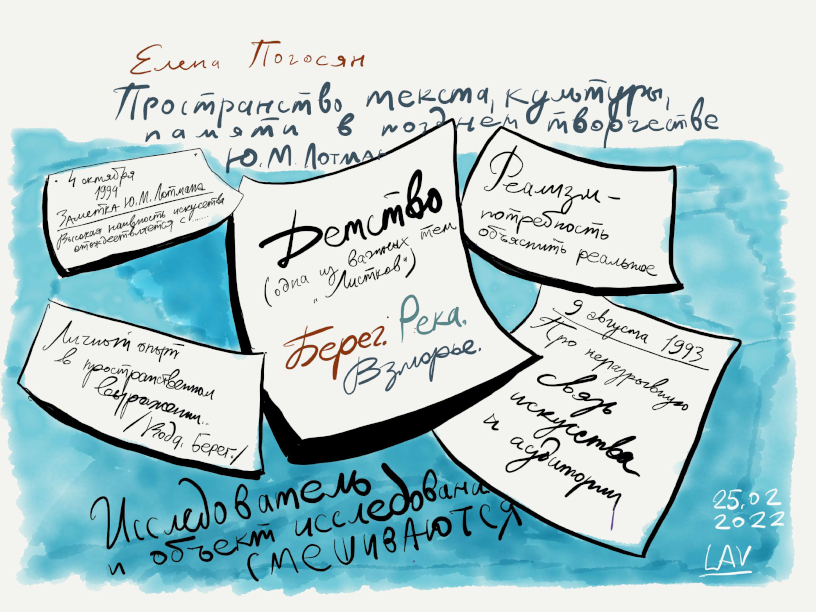 Елена Погосян
Пространство текста, культуры,
памяти в позднем творчестве
Ю.М. Лотма
4 октября
1994
Заметка Ю.М. Лотмана
Высокая наивность искусства
отождествляется с......
Детство
(одна из важных тем
"Листков")
Берег. Река.
Взморье.
Реализм –
потребность
объяснить реальное
Личный опыт
в пространственном
выражении..
/Вода. Берег./
9 августа 1993
Про неразрывную
связь
искусства
и аудитории
Исследователь
и объект исследована
смешиваются
25.02
2022
LAV